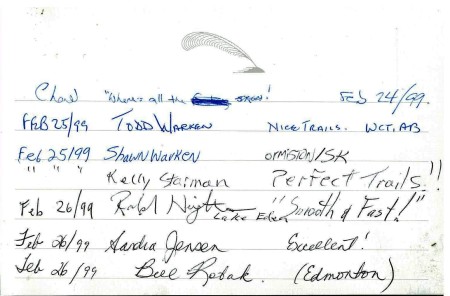 Chad "Where's all the snow! FEB 24/99.
FEB 25/99 TODD WARKEN NICE TRAILS. WCT, AB
Feb 25/99 SHAWN WARKEN ORMISTON/SK
" " " Kelly Stairman Perfect Trails!!
Feb 26/99 Lake Eden "Smooth & Fast!"
Feb 26/99 Sandra Jensen Excellent!
Feb 26/99 Bill Rebak. (Edmonton)